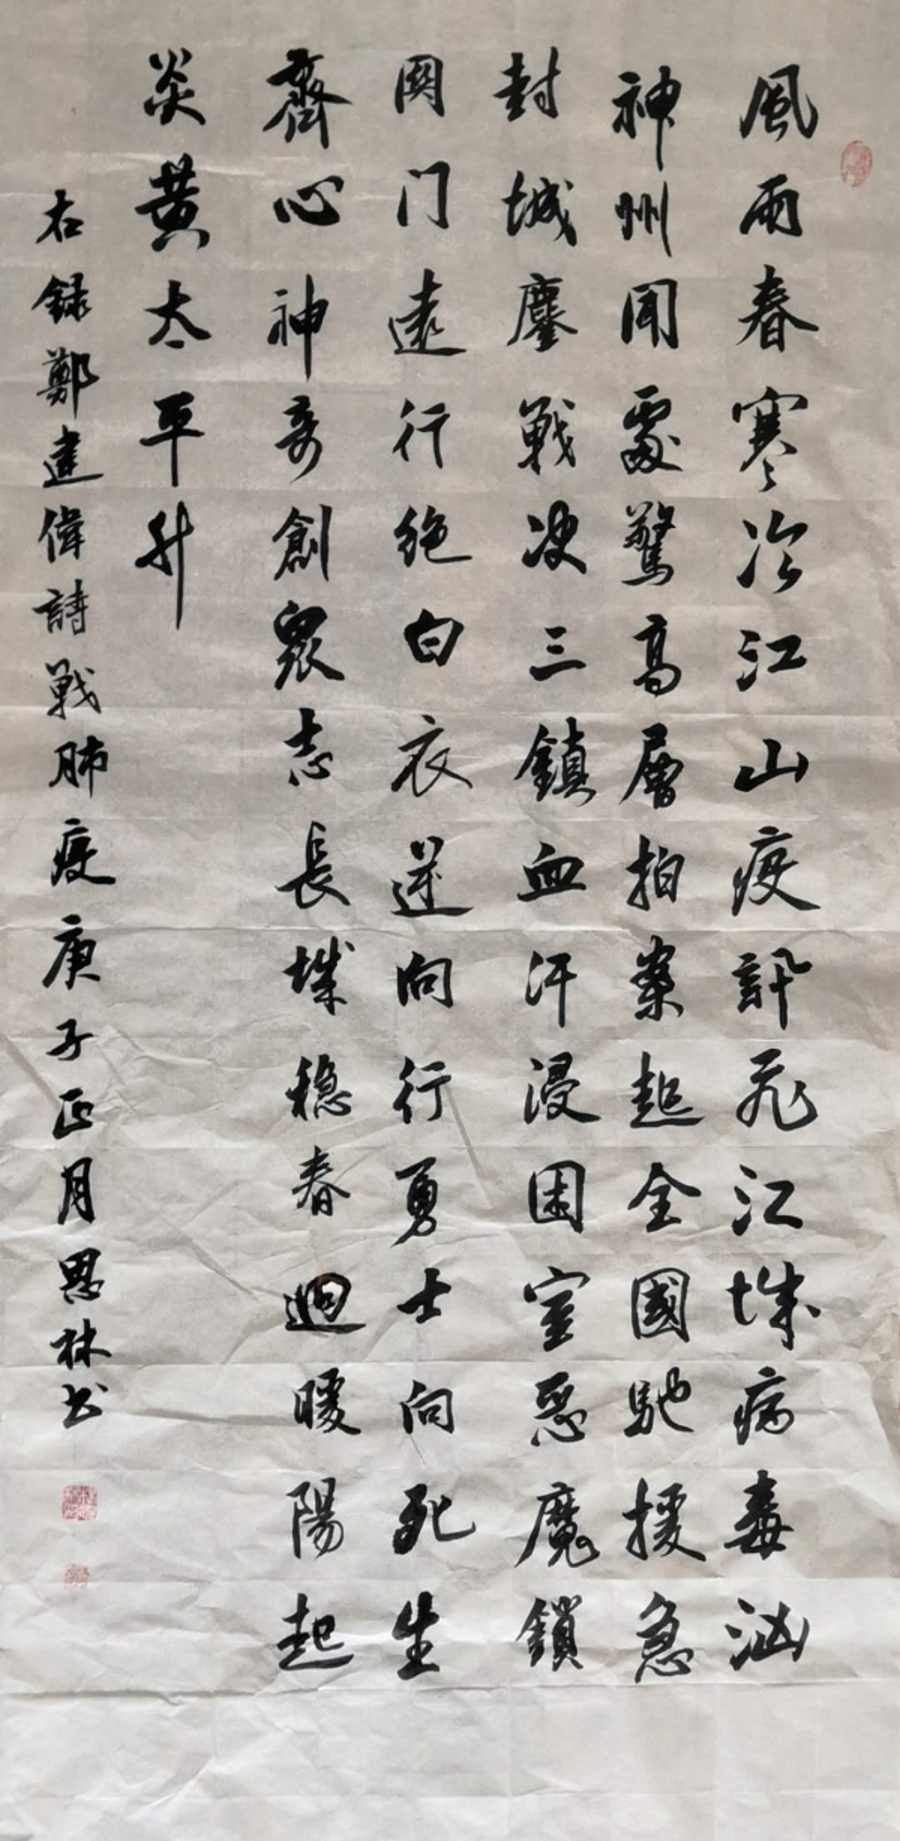 風雨春寒冷江山疫訊飛江城病毒汹
神州聞處驚高層拍案起全國馳援急
封城鏖戰决三鎮血汗浸困室惡魔鎖
関门遠行絶白衣逆向行勇士向死生
齊心神奇創眾志長城穩春迴暖陽起
炎黄太平升
右録鄭建偉詩戰肺疫庚子正月恩林书